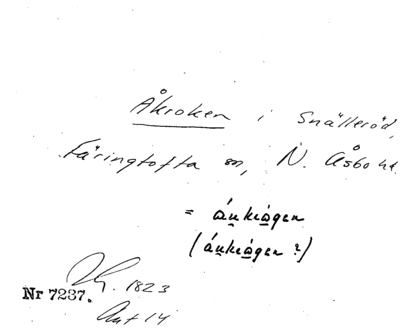 Åkroken i Snälleröd,
Färingtofta sn, N. Åsbo hd.
= áṉkrågen
(áṉkrågen ?)
1823
Nr 7237.
14